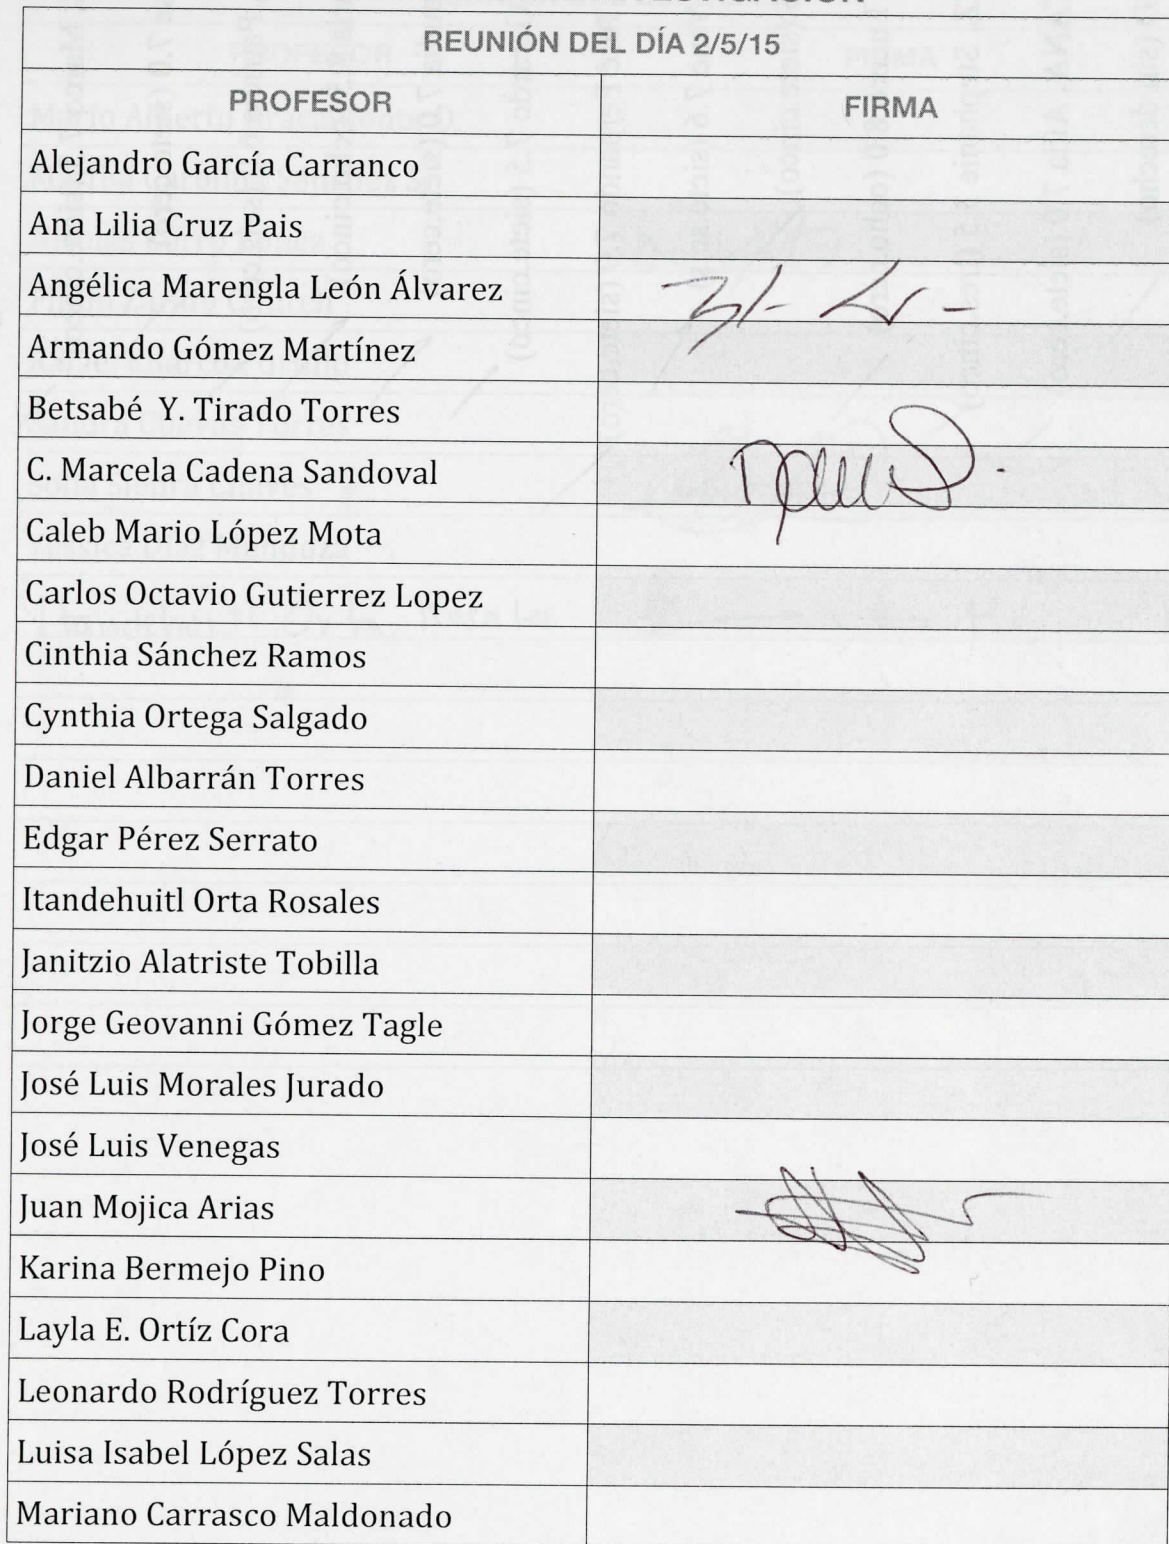 REUNIÓN DEL DÍA 2/5/15
PROFESOR FIRMA
Alejandro García Carranco
Ana Lilia Cruz Pais
Angélica Marengla León Álvarez
Armando Gómez Martínez
Betsabé Y. Tirado Torres
C. Marcela Cadena Sandoval
Caleb Mario López Mota
Carlos Octavio Gutierrez Lopez
Cinthia Sánchez Ramos
Cynthia Ortega Salgado
Daniel Albarrán Torres
Edgar Pérez Serrato
Itandehuitl Orta Rosales
Janitzio Alatriste Tobilla
Jorge Geovanni Gómez Tagle
José Luis Morales Jurado
José Luis Venegas
Juan Mojica Arias
Karina Bermejo Pino
Layla E. Ortíz Cora
Leonardo Rodríguez Torres
Luisa Isabel López Salas
Mariano Carrasco Maldonado